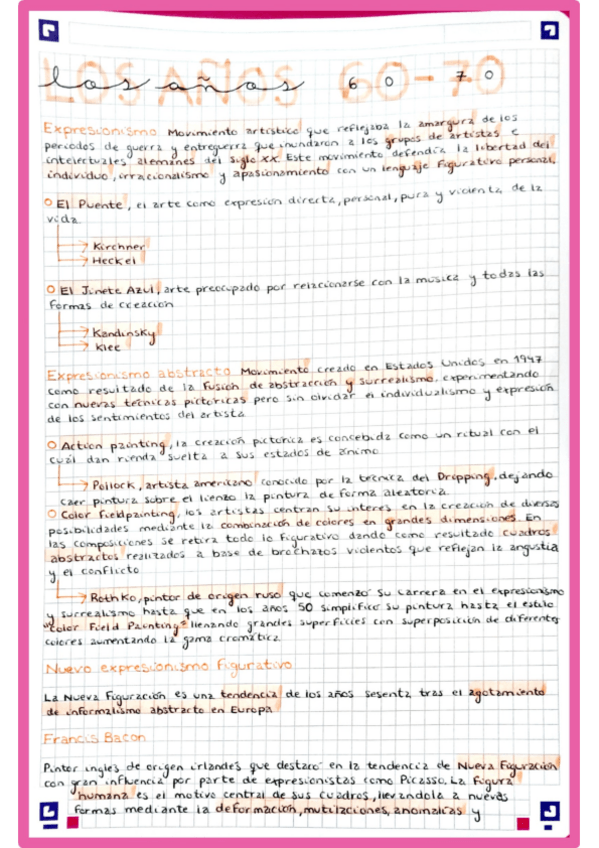 LOS AÑOS 60-70
los años 60 70
Expresionismo Movimiento artístico que reflejaba la amargura de los
periodos de guerra y entreguerra que inundaron a los grupos de artistas e
intelectuales alemanes del siglo XX. Este movimiento defendía la libertad del
individuo, irracionalismo y apasionamiento con un lenguaje figurativo personal.
El Puente, el arte como expresión directa, personal, pura y violenta de la
vida.
Kirchner
Heckel
El Jinete Azul, arte preocupado por relacionarse con la música y todas las
formas de creación
Kandinsky
Klee
Expresionismo abstracto Movimiento creado en Estados Unidos en 1947
como resultado de la fusión de abstracción y surrealismo, experimentando
con nuevas técnicas pictóricas pero sin olvidar el individualismo y expresión
de los sentimientos del artista
Action painting, la creación pictórica es concebida como un ritual con el
cual dan rienda suelta a sus estados de ánimo
Pollock, artista americano conocido por la técnica del Dripping, dejando
caer pintura sobre el lienzo la pintura de forma aleatoria.
Color fieldpainting, los artistas centran su interés en la creación de diversas
posibilidades mediante la combinación de colores en grandes dimensiones. En
las composiciones se retira todo lo figurativo dando como resultado cuadros
abstractos realizados a base de brochazos violentos que reflejan la angustia
y el conflicto
Rothko, pintor de origen ruso que comenzó su carrera en el expresionismo
y surrealismo hasta que en los años 50 simplificó su pintura hasta el estilo
"Color Field Painting" llenando grandes superficies con superposición de diferentes
colores aumentando la gama cromática.
Nuevo expresionismo figurativo
La Nueva Figuración es una tendencia de los años sesenta tras el agotamiento
de informalismo abstracto en Europa
Francis Bacon
Pintor inglés de origen irlandés que destacó en la tendencia de Nueva Figuración
con gran influencia por parte de expresionistas como Picasso. La figura
humana es el motivo central de sus cuadros, llevándola a nuevas
formas mediante la deformación, mutilaciones, anomalías y